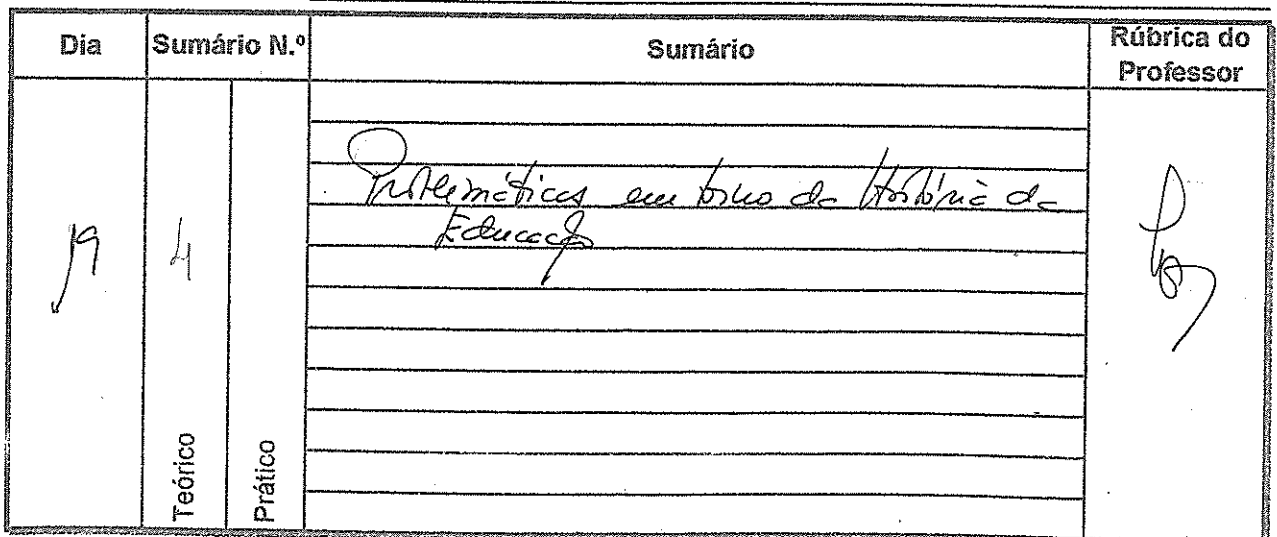 Dia Sumário N.º Sumário Rúbrica do Professor
19 4
Problemáticas em torno da História da
Educação
Teórico Prático